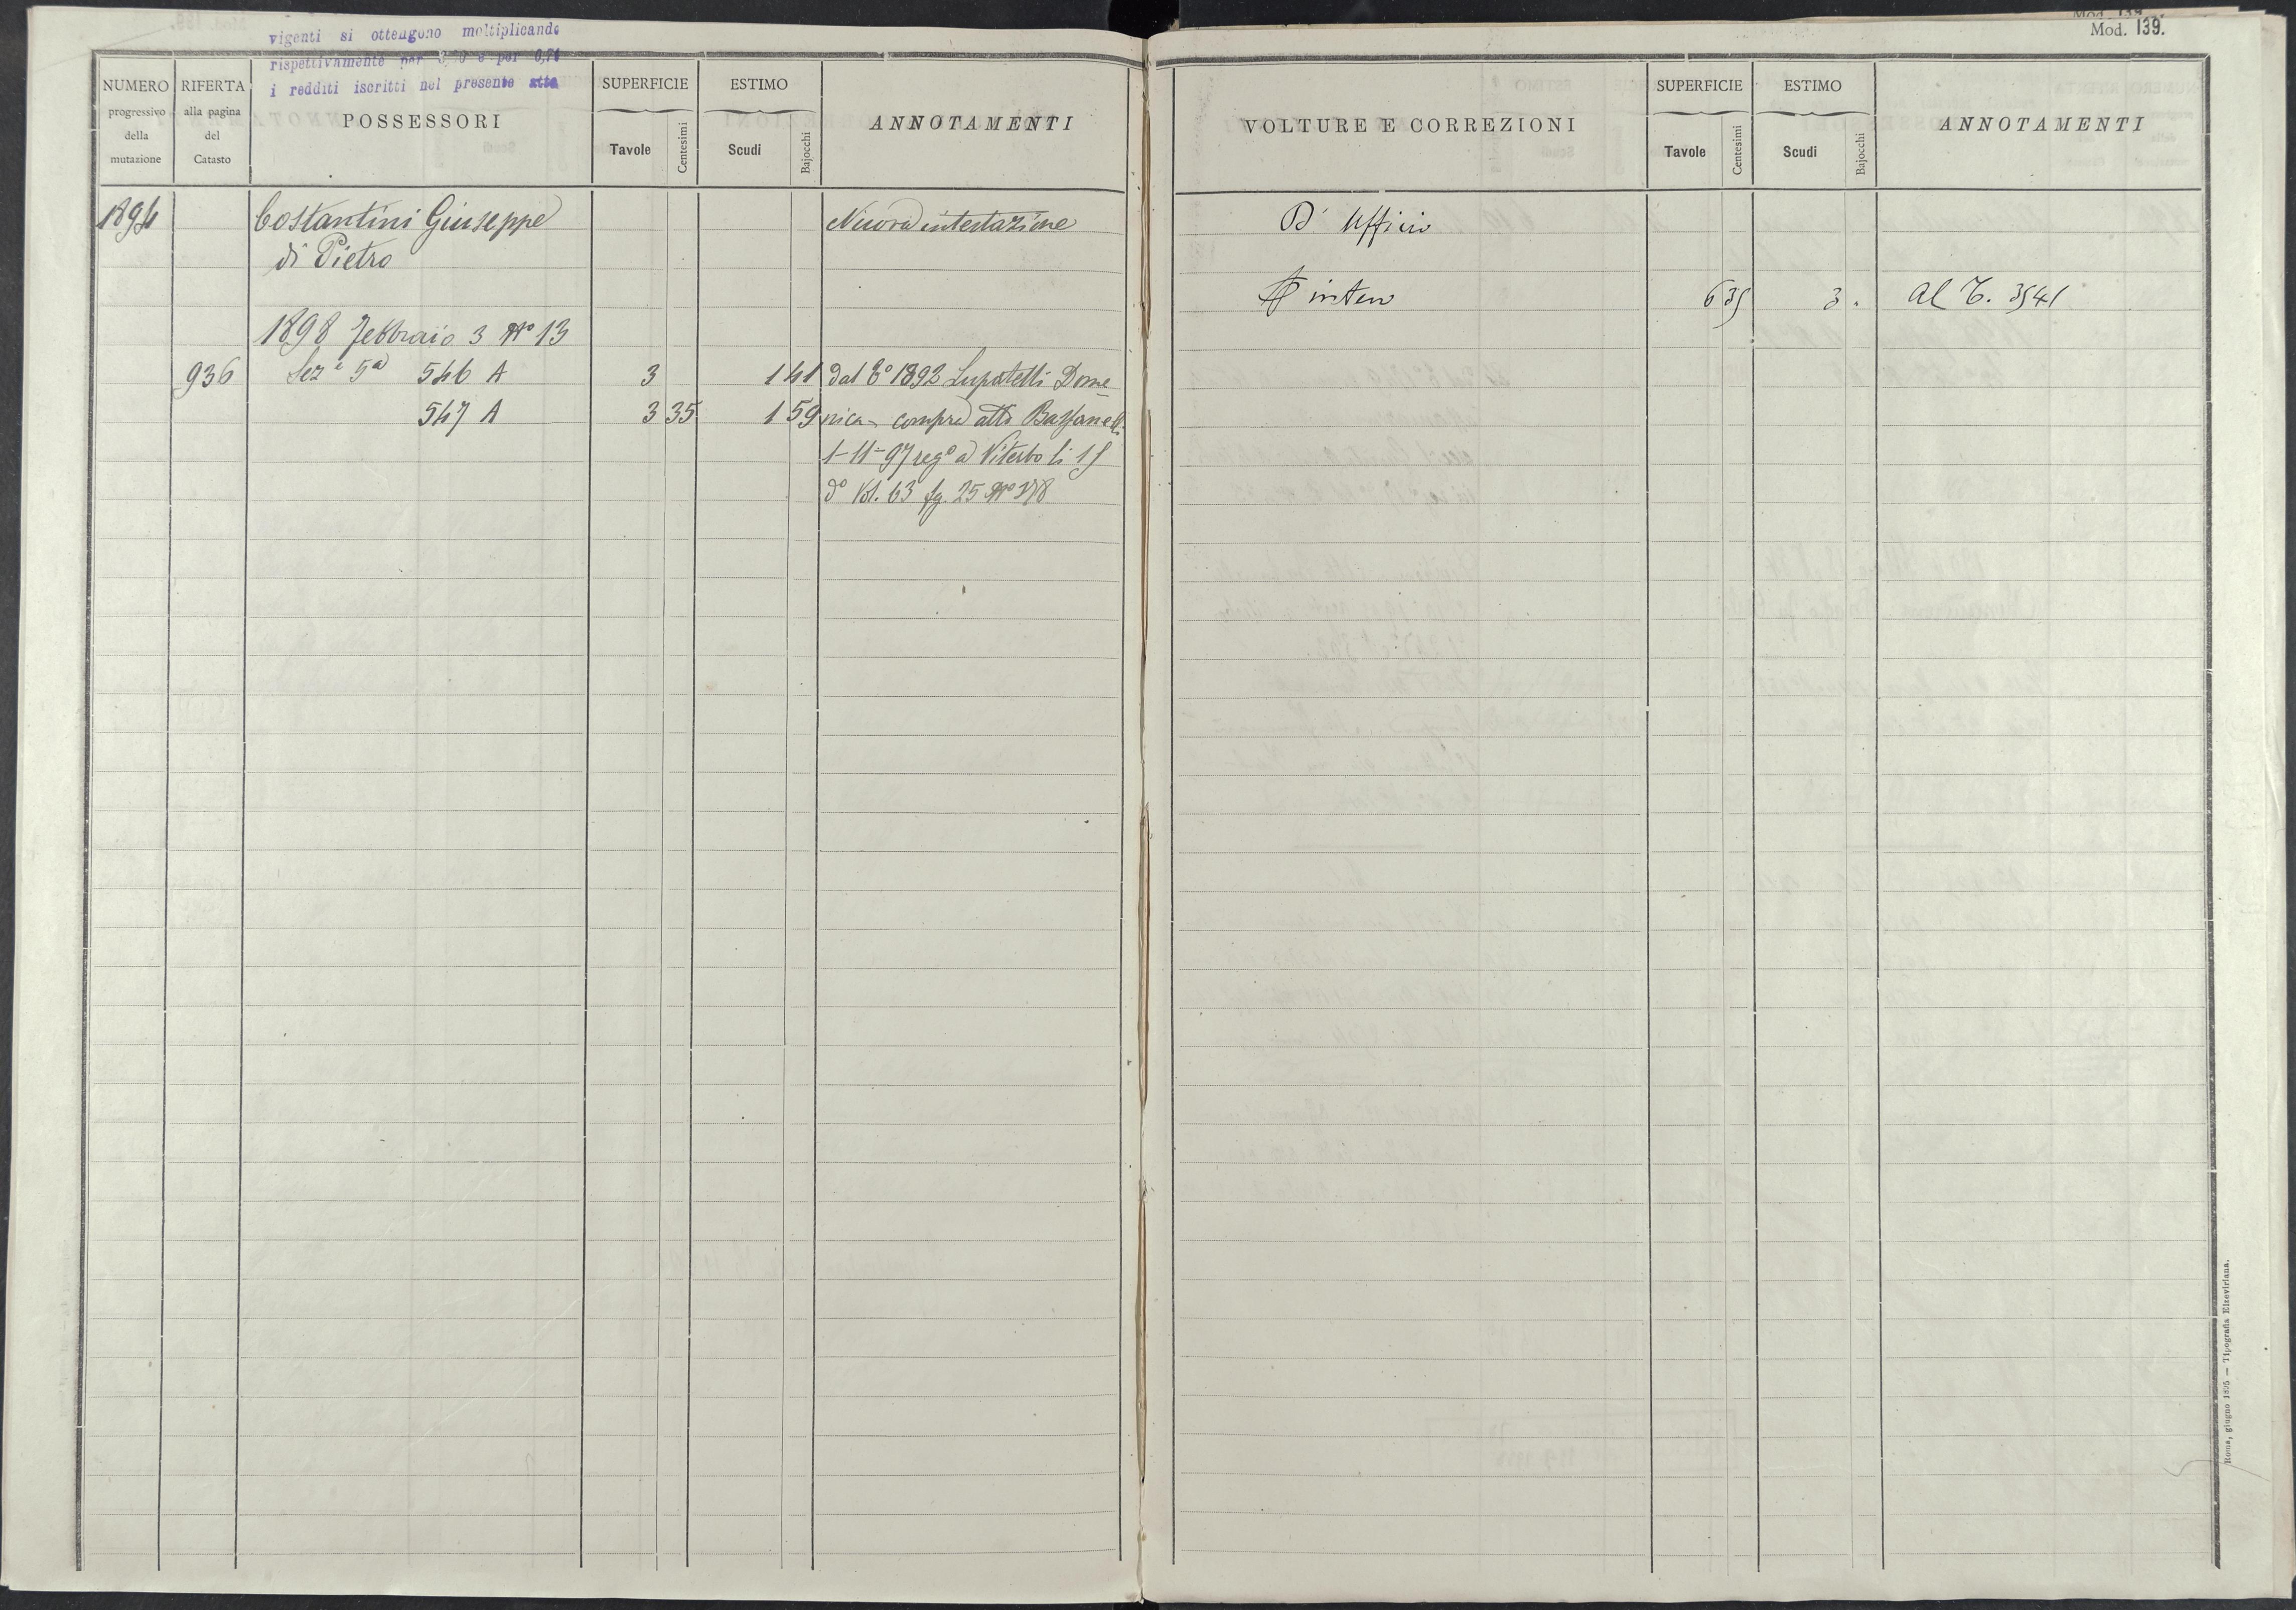 vigenti si ottengono moltiplicando
rispettivamente per e per 0,71
i redditi iscritti nel presente atto
NUMERO progressivo della mutazione
RIFERTA alla pagina del Catasto
POSSESSORI
SUPERFICIE
Tavole
Centesimi
ESTIMO
Scudi
Bajocchi
ANNOTAMENTI
1894 Costantini Giuseppe Nuova intestazione
di Pietro
1898 Febbraio 3 No 13
936 Seze 5a 546 A 3 1 41 dal To 1892 Lupatelli Dome
547 A 3 35 1 59 nica compra atto Bassanelli
1-11-97 rego a Viterbo li 15
do Vol. 63 fg. 25 No
Mod. 139.
VOLTURE E CORREZIONI
SUPERFICIE
Tavole
Centesimi
ESTIMO
Scudi
Bajocchi
ANNOTAMENTI
D' Ufficio
intero 6 35 3 . Al T. 3541
Roma, giugno 1895 — Tipografia Elzeviriana.